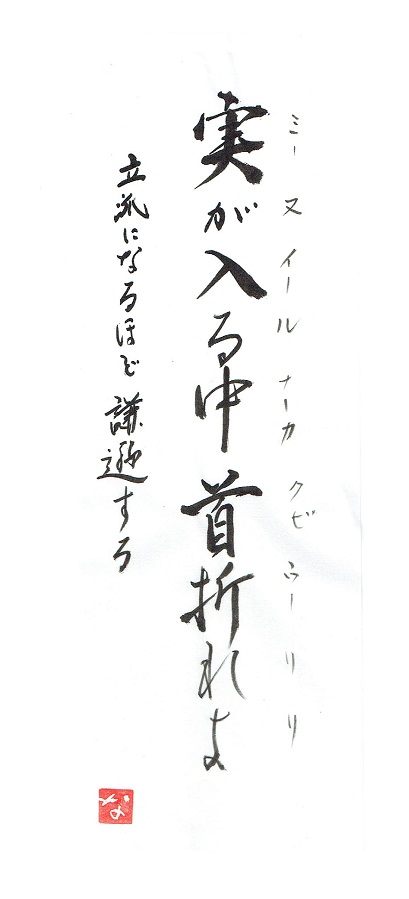 ミー ヌ イール ナーカ クビ ウーリリ
実が入る中 首折れよ
立派になるほど 謙遜する
な